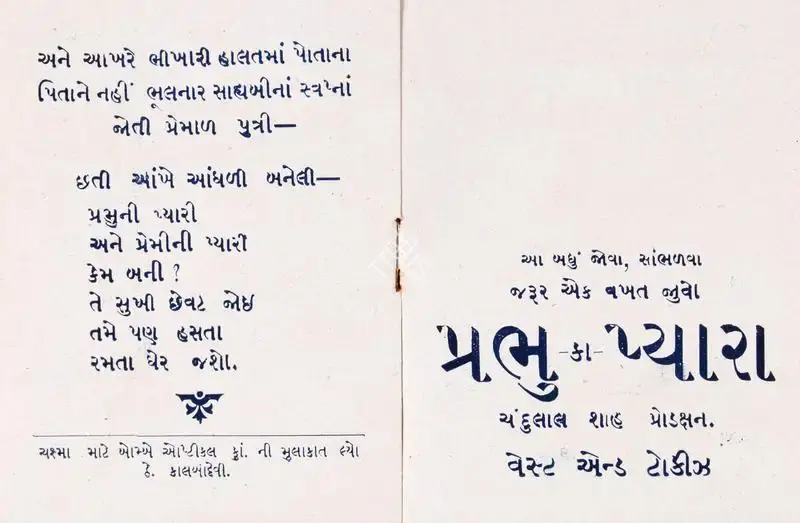 અને આખરે ભીખારી હાલતમાં પોતાના
પિતાને નહીં ભૂલનાર સાહ્યબીનાં સ્વપ્નાં
જોતી પ્રેમાળ પુત્રી—
છતી આંખે આંધળી બનેલી—
પ્રભુની પ્યારી
અને પ્રેમીની પ્યારી
કેમ બની ?
તે સુખી છેવટ જોઇ
તમે પણ હસતા
રમતા ઘેર જશો.
ચશ્મા માટે બોમ્બે ઓપ્ટીકલ કું. ની મુલાકાત લ્યો
ઠે. કાલબાદેવી.
આ બધું જોવા, સાંભળવા
જરૂર એક વખત જુવો
પ્રભુ -કા- પ્યારા
ચંદુલાલ શાહ પ્રોડક્ષન.
વેસ્ટ એન્ડ ટોકીઝ